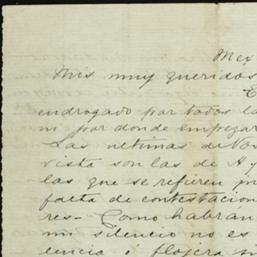 Mex
Mis muy queridos
E
endrogado por todos la
ni por donde empezar
Las ultimas de Vos
vista son las de A y
las que se refieren pr
falta de contestacion
res- Como habran
mi silencio no es
lencia ó flojera sin